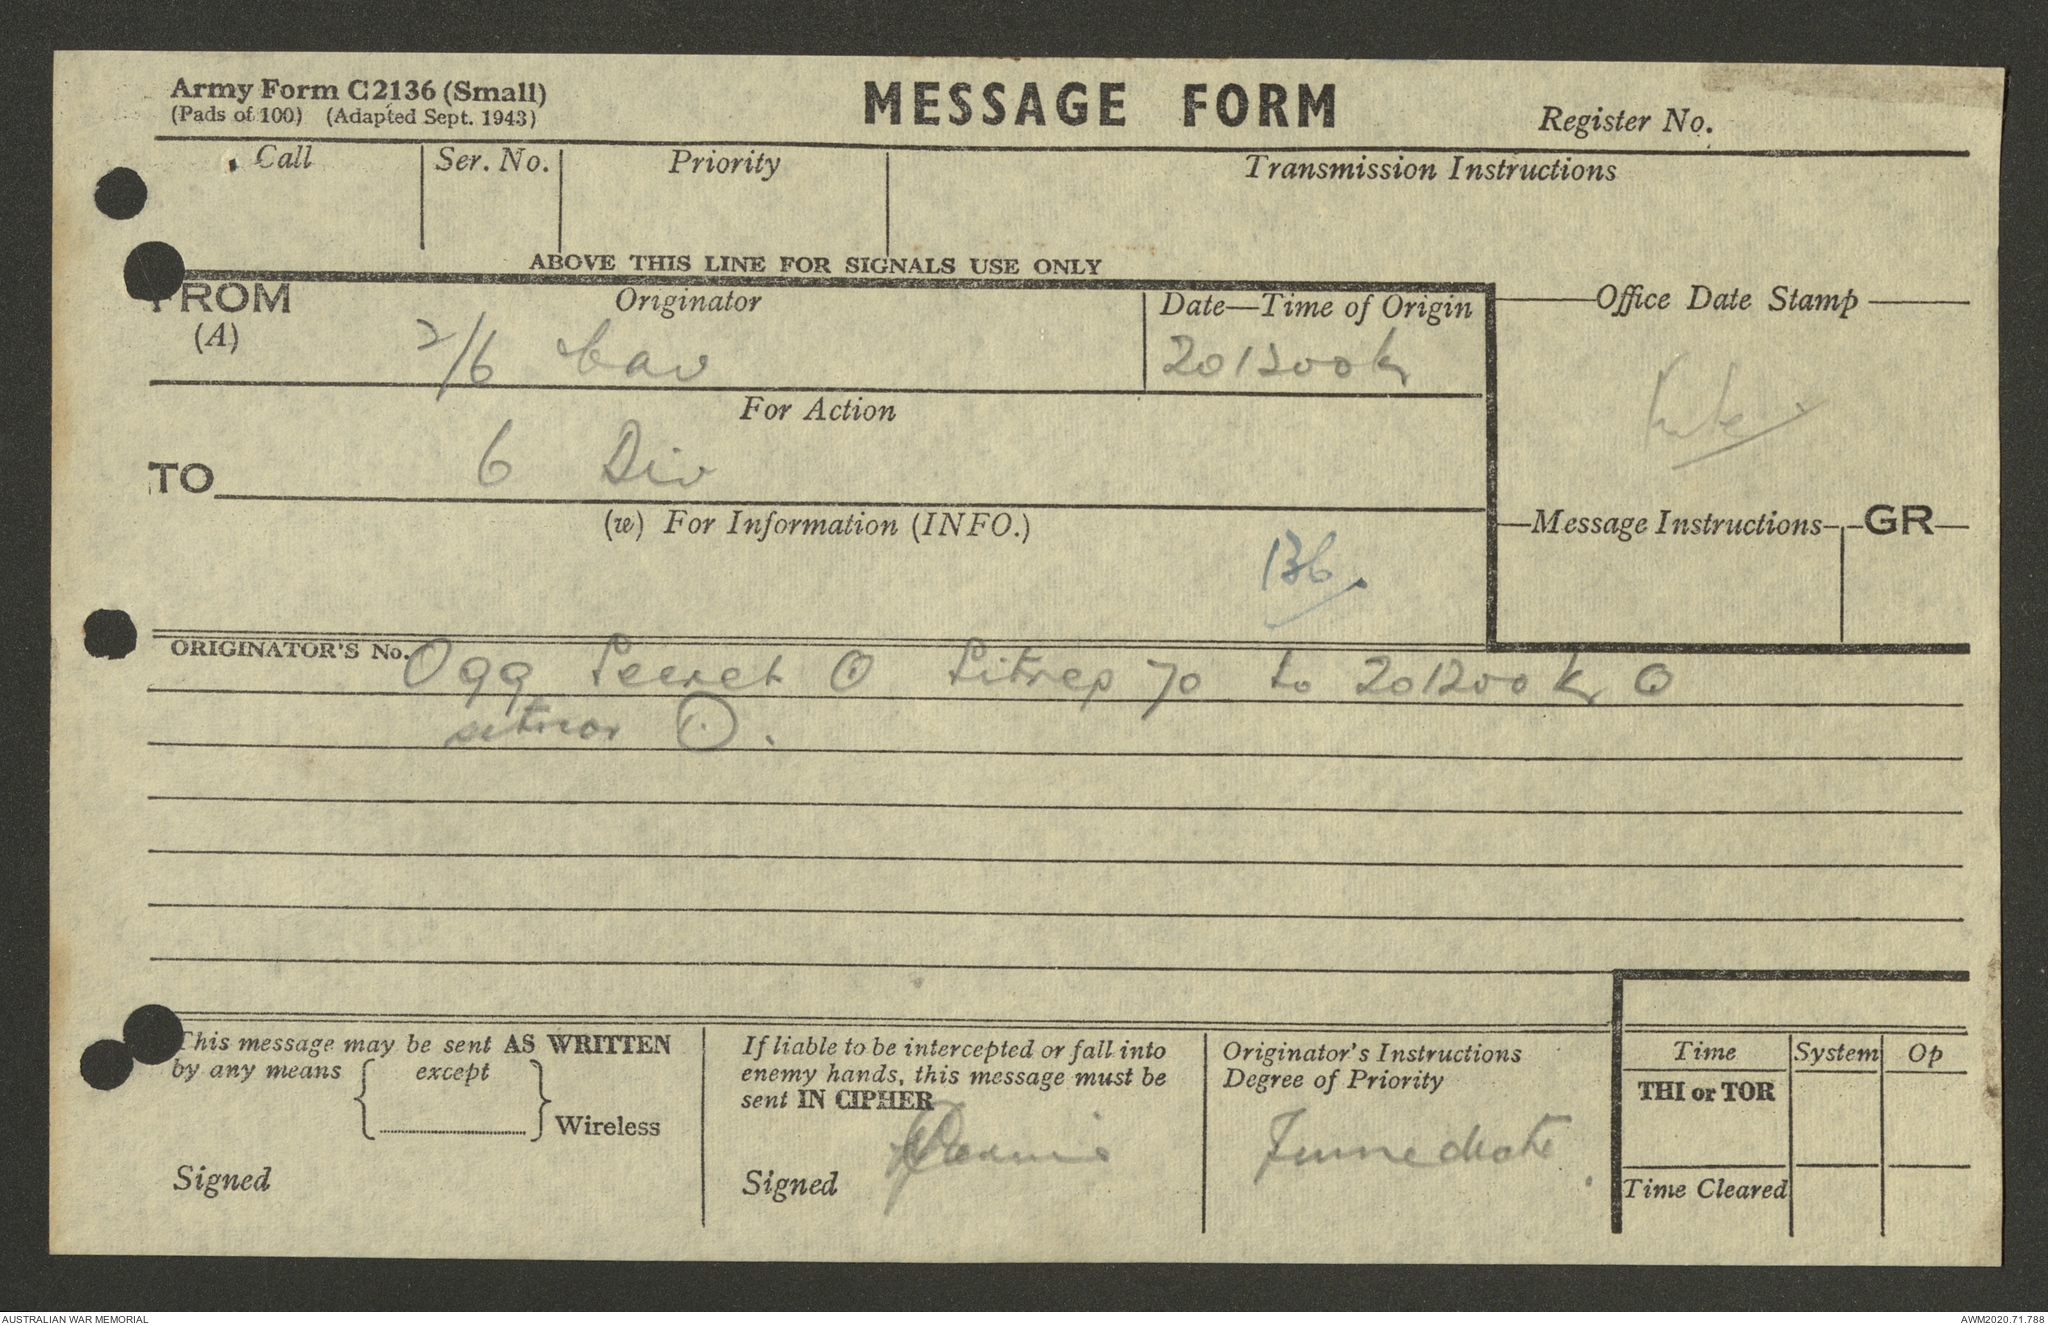 Army Form C2136 (Small)
(Pads of 100) (Adapted Sept. 1943)
MESSAGE FORM
Register No.
Call
Ser. No.
Priority
Transmission Instructions
ABOVE THIS LINE FOR SIGNALS USE ONLY
FROM
(A)
Originator
2/6 Cav
Date—Time of Origin
201200K
Office Date Stamp
For Action
TO
6 Div
(w) For Information (INFO.)
136.
Message Instructions
GR
ORIGINATOR'S No.
O99 Secret O Sitrep 70 to 201200K O
sitnor O.
This message may be sent AS WRITTEN
by any means { except
} Wireless
Signed
If liable to be intercepted or fall into
enemy hands, this message must be
sent IN CIPHER
Signed
Originator's Instructions
Degree of Priority
Immediate
Time
System
Op
THI or TOR
Time Cleared
AUSTRALIAN WAR MEMORIAL
AWM2020.71.788